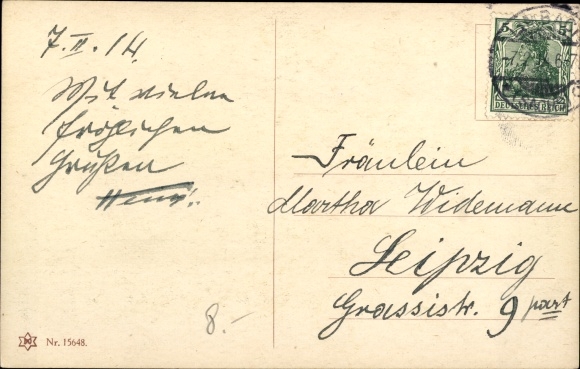 7.II.14.
Mit vielen
fröhlichen
Grüßen
5 5
DEUTSCHES REICH
Fräulein
Martha Widemann
Leipzig
Grassistr. 9 part
8.-
Nr. 15648.